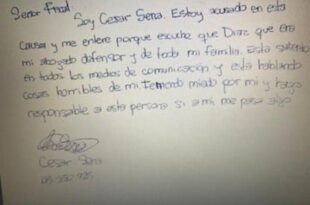 Señor fiscal
Soy Cesar Sena. Estoy acusado en esta
causa y me entere porque escuche que Diaz que era
mi abogado defensor y de toda mi familia. esta saliendo
en todos los medios de comunicación y esta hablando
cosas horribles de mi temiendo miedo por mi y hago
responsable a esta persona si a mi me pasa algo
Cesar Sena